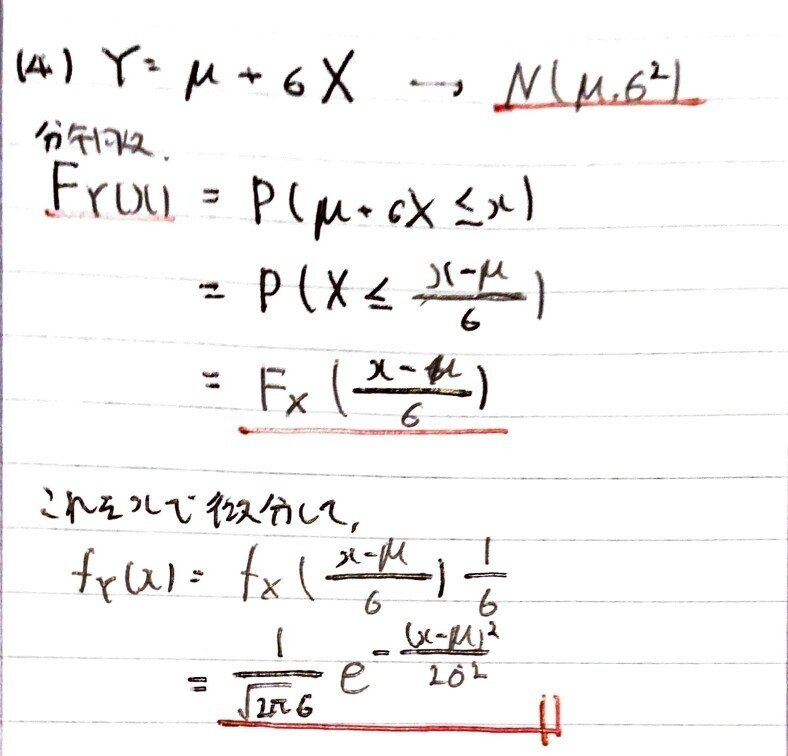 (4) Y = μ + σX → N(μ, σ²)
分布関数.
F_Y(x) = P(μ + σX ≤ x)
= P(X ≤ (x-μ)/σ)
= F_X((x-μ)/σ)
これをxで微分して,
f_Y(x) = f_X((x-μ)/σ) 1/σ
= 1/(√2π σ) e^{-(x-μ)²/2σ²}